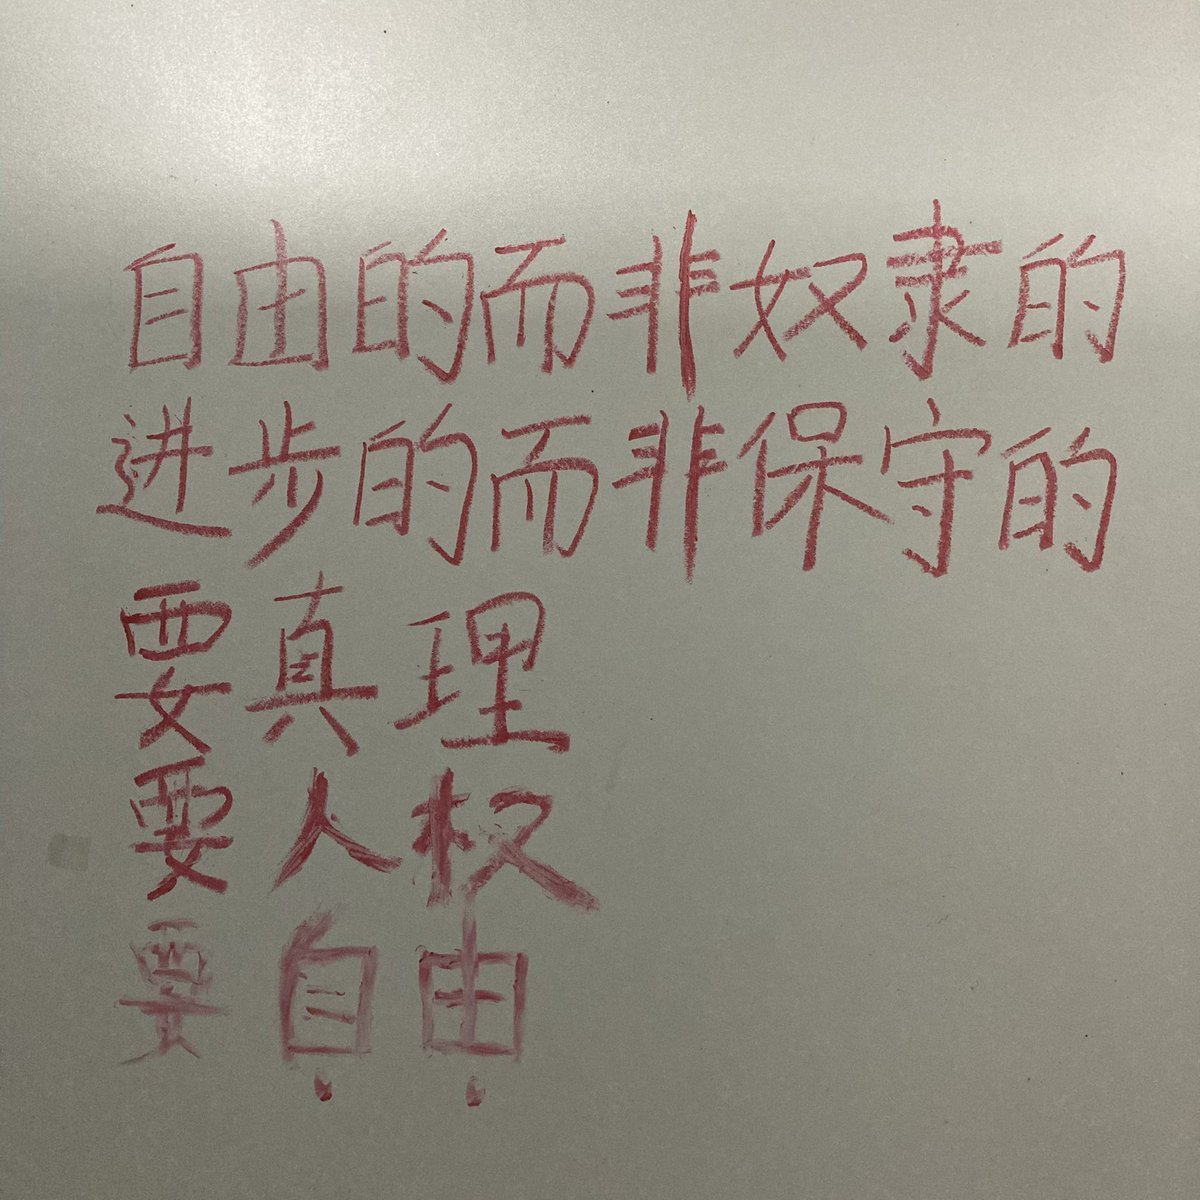 自由的而非奴隶的
进步的而非保守的
要真理
要人权
要自由